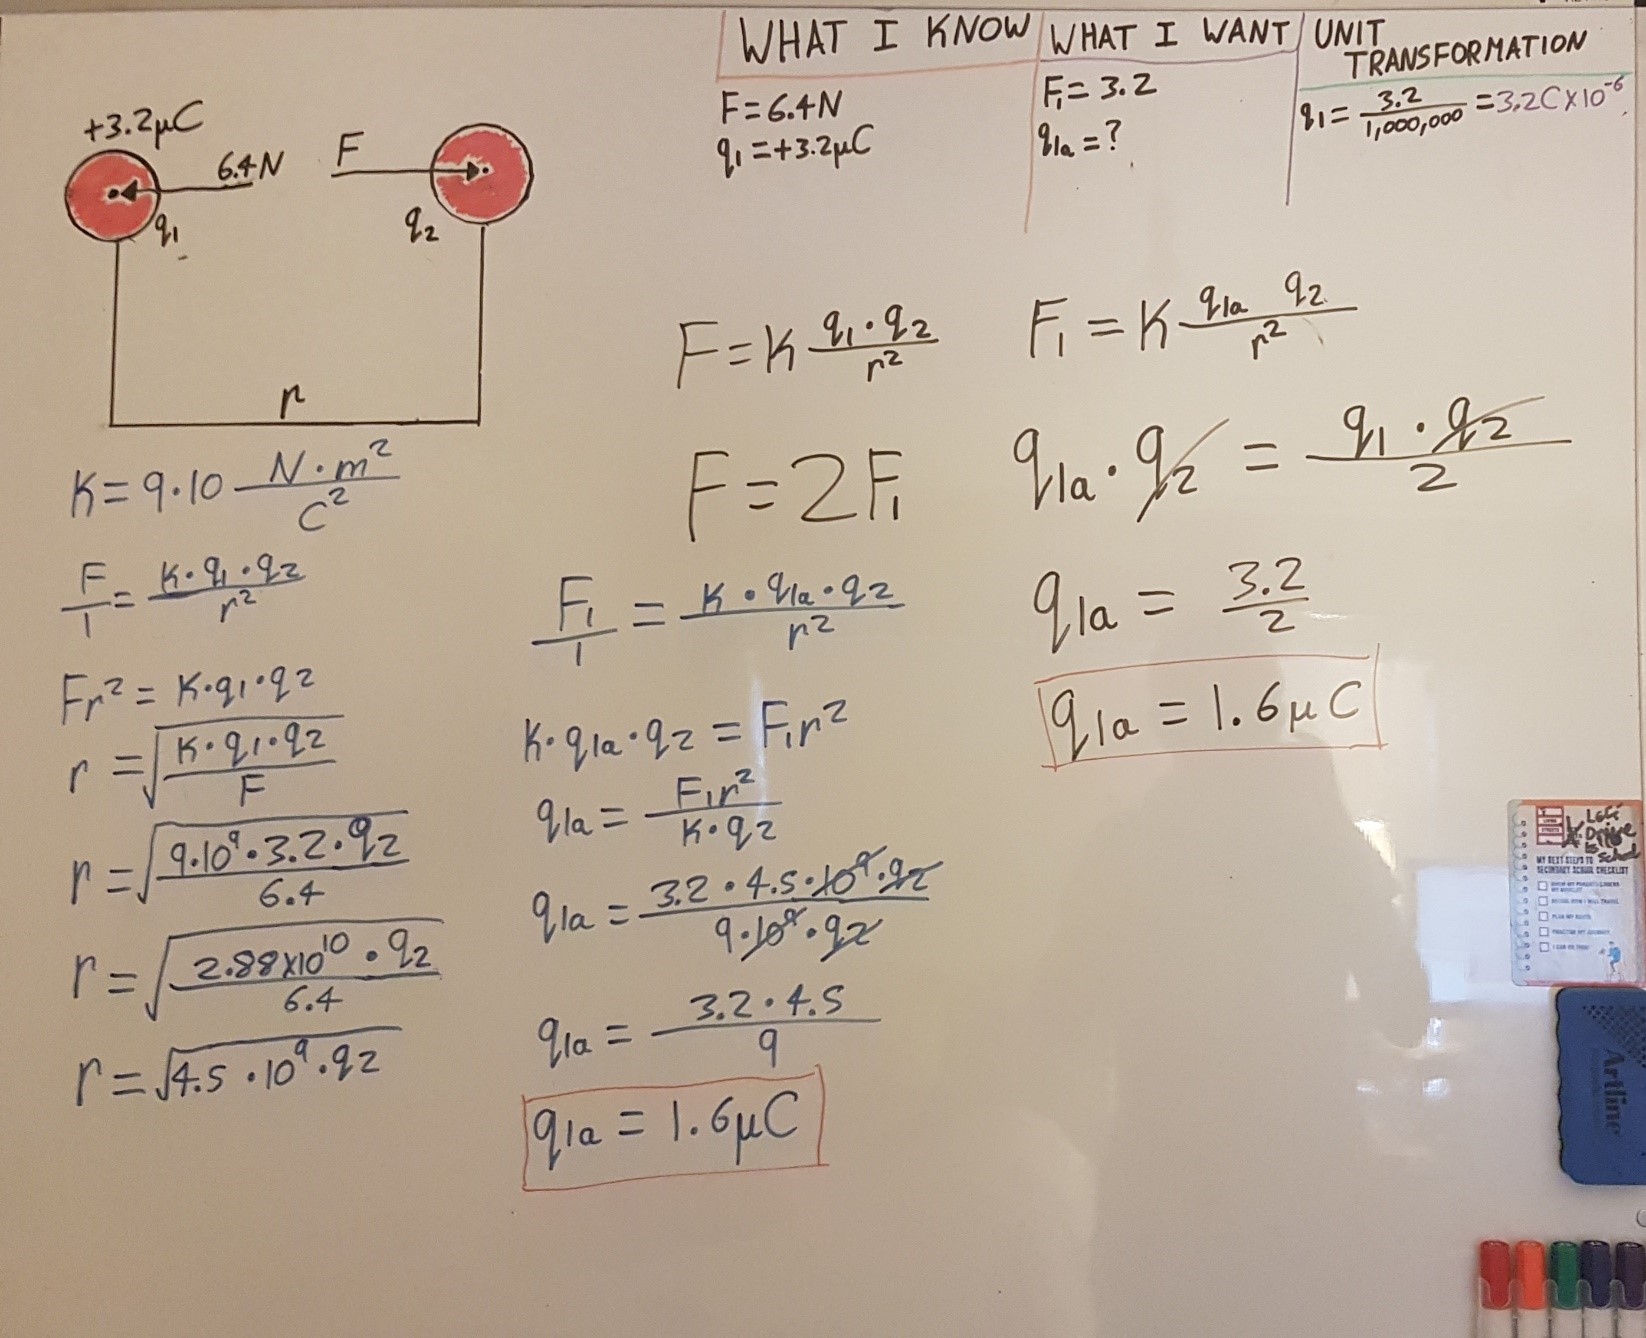 WHAT I KNOW
F=6.4N
q1=+3.2μC
WHAT I WANT
F1=3.2
q1a=?
UNIT
TRANSFORMATION
q1=3.2/1,000,000=3.2C×10^-6
+3.2μC
6.4N
F
q1
q2
r
K=9·10 N·m²/C²
F/1=K·q1·q2/r²
Fr²=K·q1·q2
r=√(K·q1·q2/F)
r=√(9·10⁹·3.2·q2/6.4)
r=√(2.88×10¹⁰·q2/6.4)
r=√(4.5·10⁹·q2)
F=K q1·q2/r²
F=2F1
F1/1=K·q1a·q2/r²
K·q1a·q2=F1r²
q1a=F1r²/K·q2
q1a=3.2·4.5·10⁹·q2/9·10⁹·q2
q1a=3.2·4.5/9
q1a=1.6μC
F1=K q1a q2/r²
q1a·q2=q1·q2/2
q1a=3.2/2
q1a=1.6μC
LIVING
STREETS
MY BEST STEPS TO
SECONDARY SCHOOL CHECKLIST
PLAN MY ROUTE
Artline